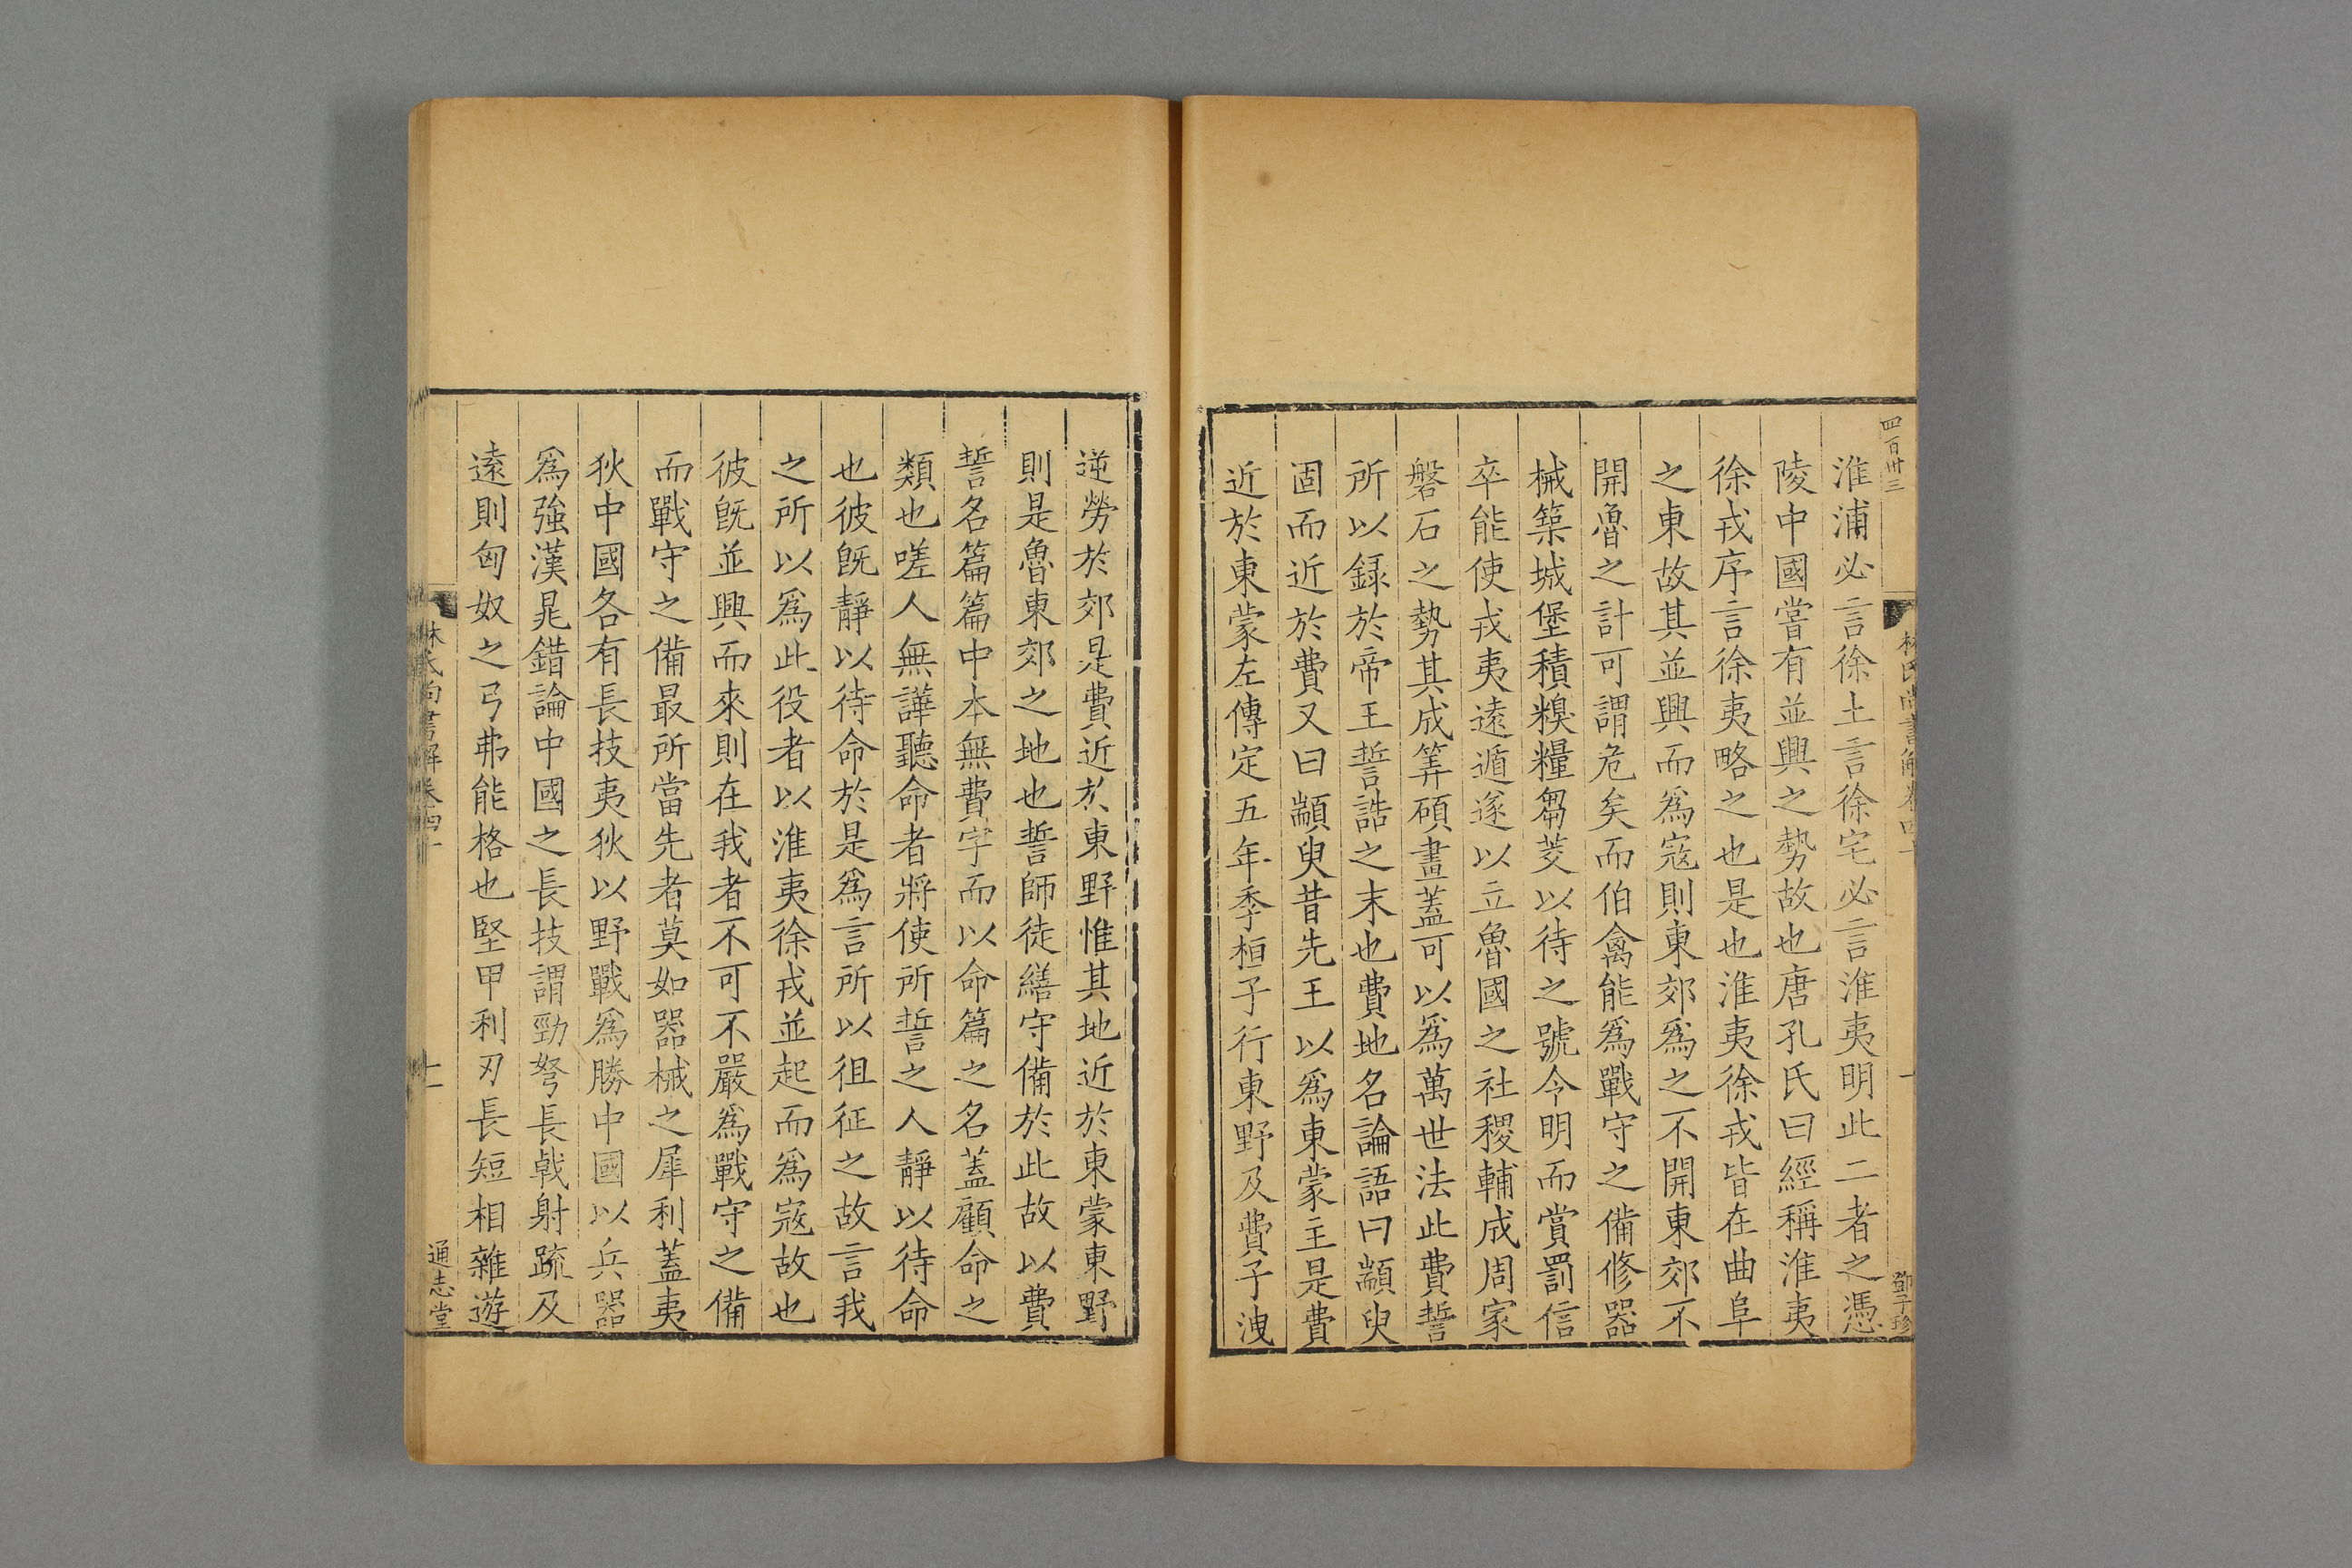 四百卌三
林氏尚書解卷四十
鄧子珍
淮浦必言徐土言徐宅必言淮夷明此二者之憑
陵中國嘗有並興之勢故也唐孔氏曰經稱淮夷
徐戎序言徐夷略之也是也淮夷徐戎皆在曲阜
之東故其並興而爲寇則東郊爲之不開東郊不
開魯之計可謂危矣而伯禽能爲戰守之備修器
械築城堡積糗糧芻茭以待之號令明而賞罰信
卒能使戎夷遠遁遂以立魯國之社稷輔成周家
磐石之勢其成筭碩畫蓋可以爲萬世法此費誓
所以録於帝王誓誥之末也費地名論語曰顓臾
固而近於費又曰顓臾昔先王以爲東蒙主是費
近於東蒙左傳定五年季桓子行東野及費子洩
逆勞於郊是費近於東野惟其地近於東蒙東野
則是魯東郊之地也誓師徒繕守備於此故以費
誓名篇篇中本無費字而以命篇之名蓋顧命之
類也嗟人無譁聽命者將使所誓之人靜以待命
也彼旣靜以待命於是爲言所以徂征之故言我
之所以爲此役者以淮夷徐戎並起而爲寇故也
彼旣並興而來則在我者不可不嚴爲戰守之備
而戰守之備最所當先者莫如器械之犀利蓋夷
狄中國各有長技夷狄以野戰爲勝中國以兵器
爲強漢晁錯論中國之長技謂勁弩長戟射疏及
遠則匈奴之弓弗能格也堅甲利刃長短相雜遊
林氏尚書解卷四十
十一
通志堂